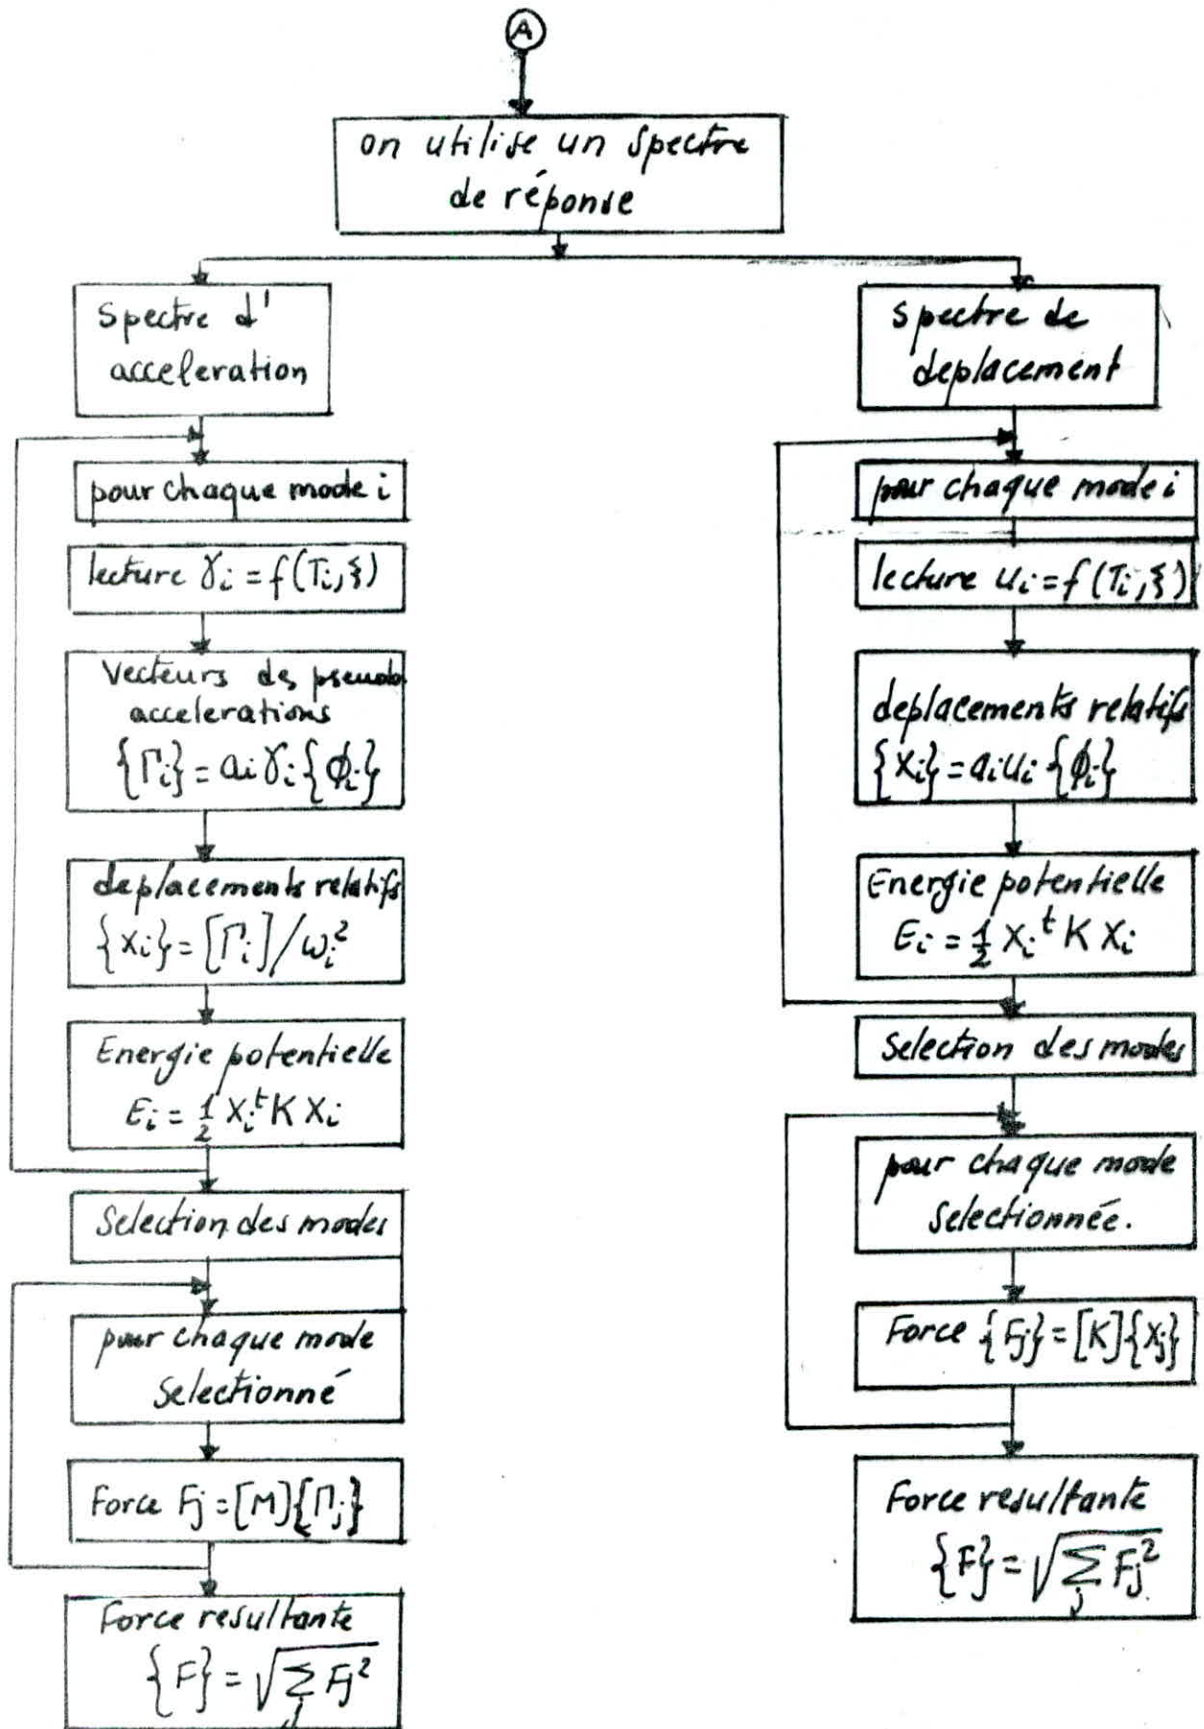 A
on utilise un spectre
de réponse
Spectre d'
acceleration
pour chaque mode i
lecture γi = f(Ti, ξ)
Vecteurs des pseudo
accelerations
{Γi} = ai γi {ϕi}
deplacements relatifs
{xi} = [Γi]/ωi²
Energie potentielle
Ei = 1/2 Xi^t K Xi
Selection des modes
pour chaque mode
selectionné
Force Fj = [M]{Γj}
Force resultante
{F} = √∑j Fj²
spectre de
deplacement
pour chaque mode i
lecture ui = f(Ti, ξ)
deplacements relatifs
{Xi} = ai ui {ϕi}
Energie potentielle
Ei = 1/2 Xi^t K Xi
Selection des modes
pour chaque mode
selectionnée.
Force {Fj} = [K]{Xj}
Force resultante
{F} = √∑j Fj²